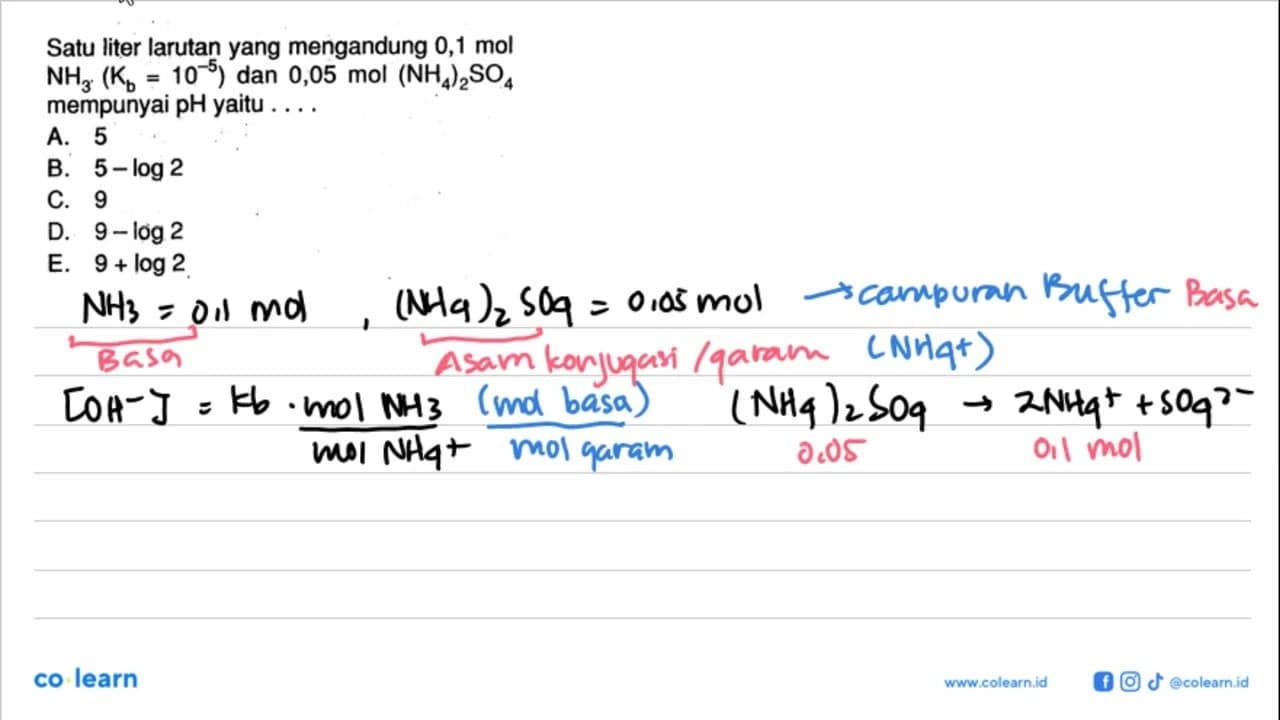 Satu liter larutan yang mengandung 0,1 mol
NH₃ (K_b = 10⁻⁵) dan 0,05 mol (NH₄)₂SO₄
mempunyai pH yaitu . . . .
A. 5
B. 5 – log 2
C. 9
D. 9 – log 2
E. 9 + log 2
NH3 = 0,1 mol , (NH4)2 SO4 = 0,05 mol → campuran Buffer Basa
Basa Asam konjugasi /garam (NH4+)
[OH-] = Kb . mol NH3 (mol basa) (NH4)2SO4 → 2NH4+ + SO4 2-
mol NH4+ mol garam 0.05 0,1 mol
co learn www.colearn.id @colearn.id